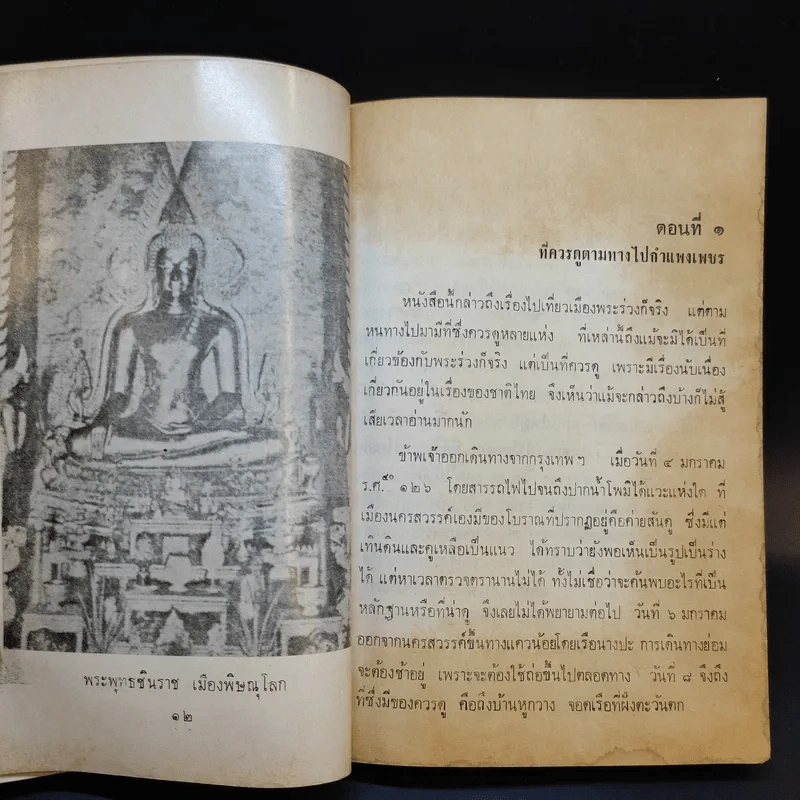 พระพุทธชินราช เมืองพิษณุโลก
๑๒
ตอนที่ ๑
ที่ควรดูตามทางไปกำแพงเพชร
หนังสือนี้กล่าวถึงเรื่องไปเที่ยวเมืองพระร่วงก็จริง แต่ตาม
หนทางไปมามีที่ซึ่งควรดูหลายแห่ง ที่เหล่านี้ถึงแม้จะมิได้เป็นที่
เกี่ยวข้องกับพระร่วงก็จริง แต่เป็นที่ควรดู เพราะมีเรื่องนับเนื่อง
เกี่ยวกันอยู่ในเรื่องของชาติไทย จึงเห็นว่าแม้จะกล่าวถึงบ้างก็ไม่สู้
เสียเวลาอ่านมากนัก
ข้าพเจ้าออกเดินทางจากกรุงเทพฯ เมื่อวันที่ ๔ มกราคม
ร.ศ.๕๐ ๑๒๖ โดยสารรถไฟไปจนถึงปากน้ำโพมิได้แวะแห่งใด ที่
เมืองนครสวรรค์เองมีของโบราณที่ปรากฏอยู่คือค่ายสันคู ซึ่งมีแต่
เทินดินและคูเหลือเป็นแนว ได้ทราบว่ายังพอเห็นเป็นรูปเป็นร่าง
ได้ แต่หาเวลาตรวจตรานานไม่ได้ ทั้งไม่เชื่อว่าจะค้นพบอะไรที่เป็น
หลักฐานหรือที่น่าดู จึงเลยไม่ได้พยายามต่อไป วันที่ ๖ มกราคม
ออกจากนครสวรรค์ขึ้นทางแควน้อยโดยเรือนางปะ การเดินทางย่อม
จะต้องช้าอยู่ เพราะจะต้องใช้ถ่อขึ้นไปตลอดทาง วันที่ ๘ จึงถึง
ที่ซึ่งมีของควรดู คือถึงบ้านหูกวาง จอดเรือที่ฝั่งตะวันตก